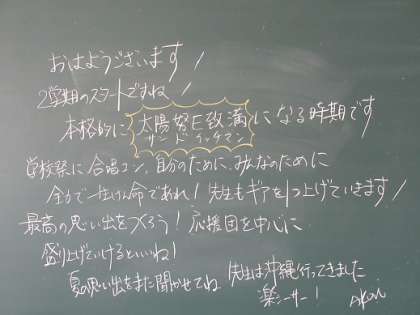 おはようございます！
2学期のスタートですね！
本格的に太陽努E致満になる時期です
サンドイッチマン
学校祭に合唱コン、自分のために、みんなのために
全力で一生けん命であれ！先生もギアを1つ上げていきます！
最高の思い出をつくろう！応援団を中心に
盛り上げていけるといいね！
夏の思い出をまた聞かせてね 先生は沖縄行ってきました
楽シーサー！